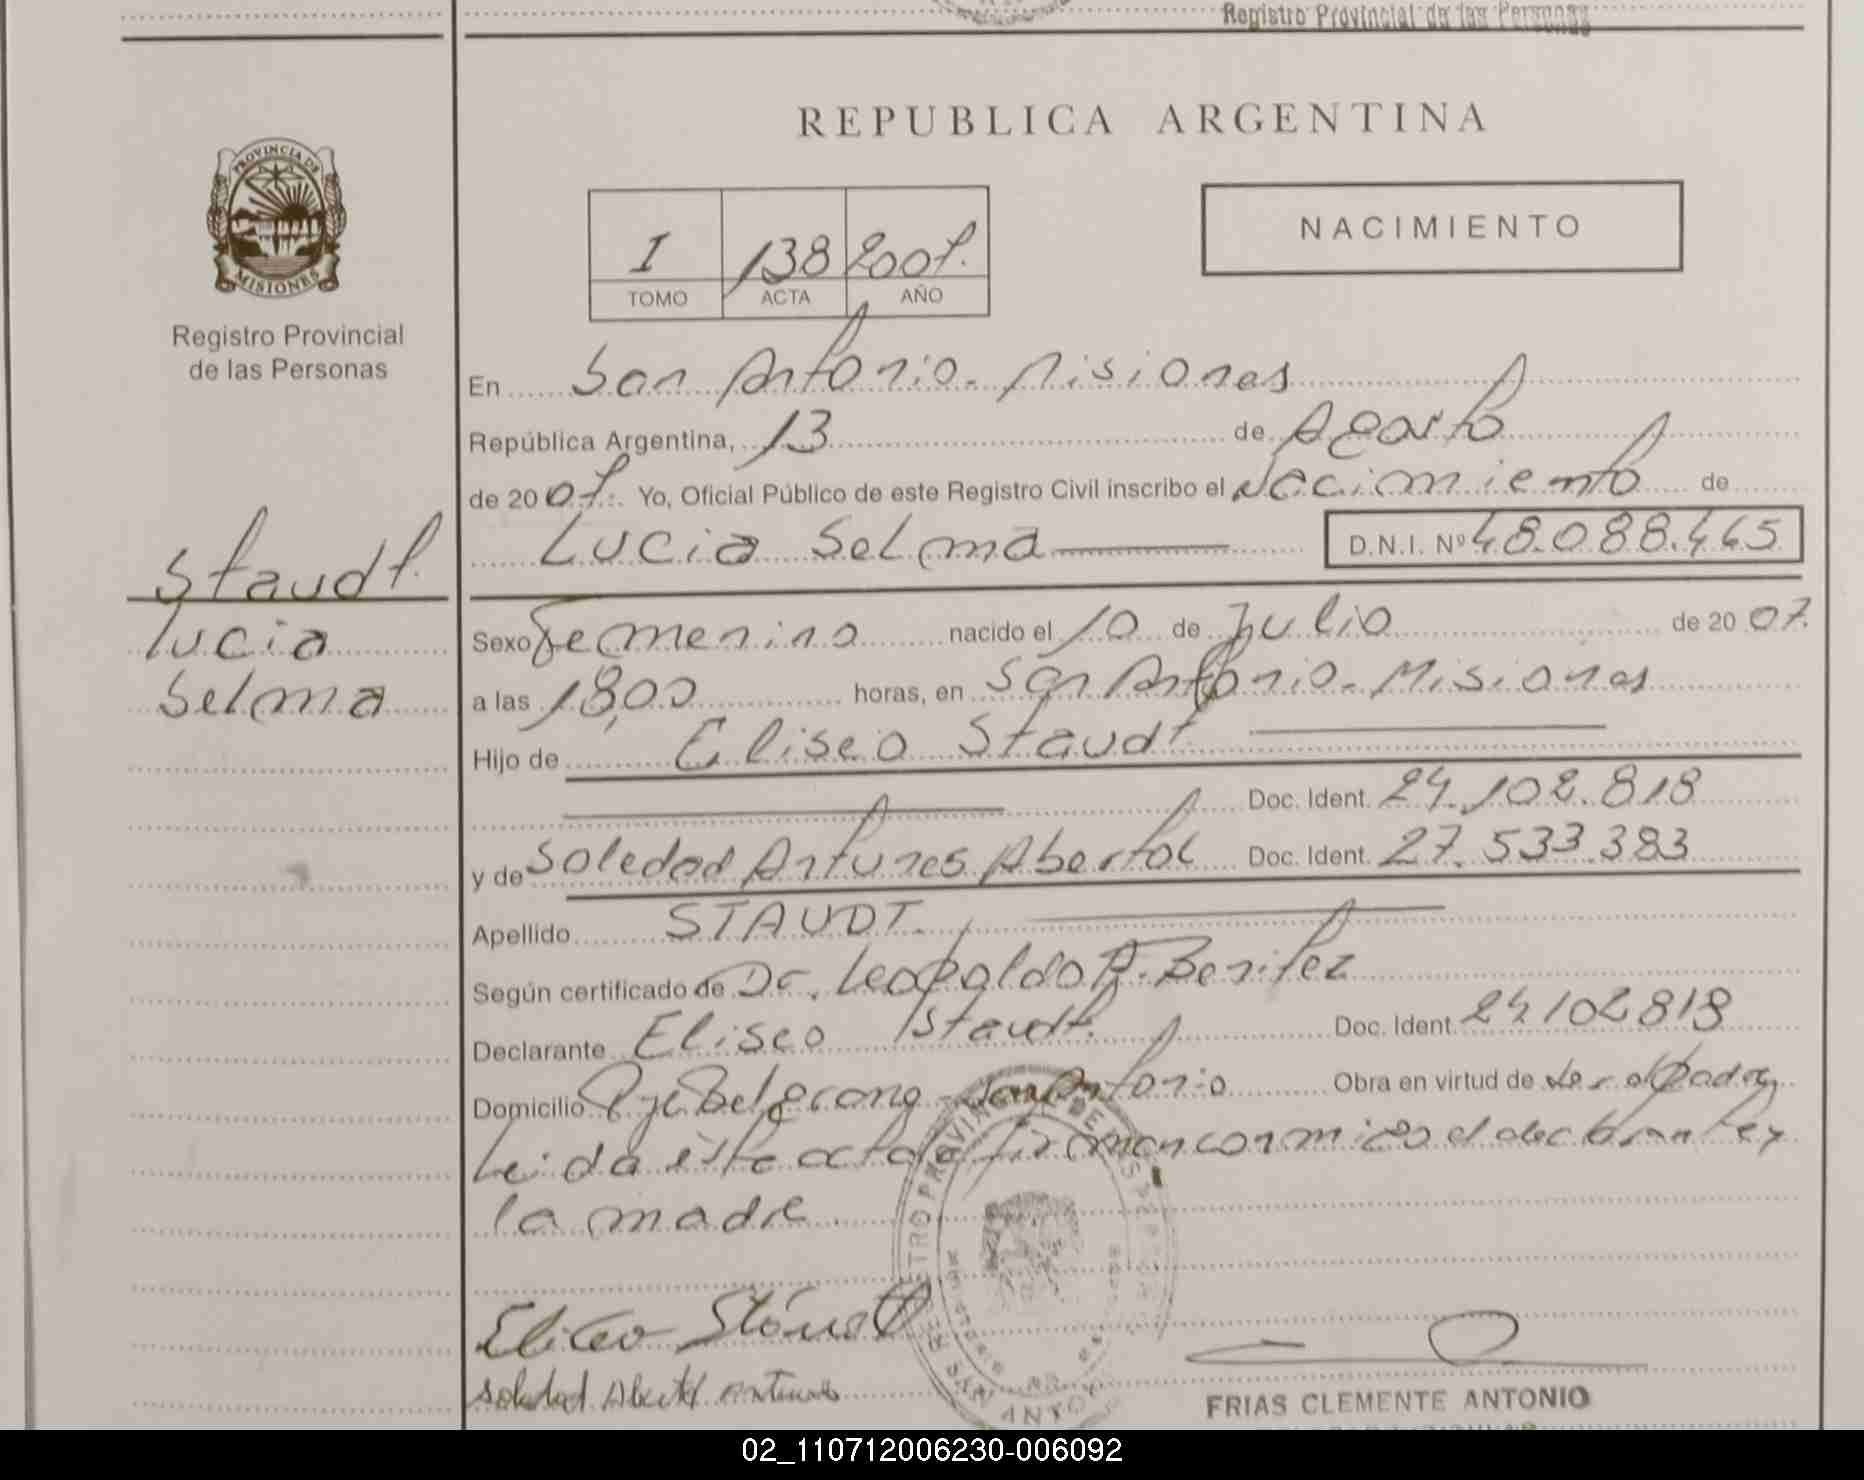 Registro Provincial de las Personas
REPUBLICA ARGENTINA
PROVINCIA DE
MISIONES
Registro Provincial
de las Personas
I 138 2007.
TOMO ACTA AÑO
NACIMIENTO
En San Antonio. Misiones
República Argentina, 13 de Agosto
de 2007. Yo, Oficial Público de este Registro Civil inscribo el Nacimiento de
Lucia Selma D.N.I. Nº 48.088.465
Staudt.
Lucia
Selma
Sexo Femenino nacido el 10 de Julio de 2007.
a las 18,00 horas, en San Antonio. Misiones
Hijo de Eliseo Staudt
Doc. Ident. 24.102.818
y de Soledad Antunes Abertol Doc. Ident. 27.533.383
Apellido STAUDT.
Según certificado de Dr. Leopoldo A. Benitez
Declarante Eliseo Staudt. Doc. Ident. 24102818
Domicilio Pje Belgrano San Antonio Obra en virtud de ser el Padre
Leida este acta la firman conmigo el declarante y
la madre
Eliseo Staudt
Soledad Abertol Antunes
SAN ANTONIO
FRIAS CLEMENTE ANTONIO
02_110712006230-006092